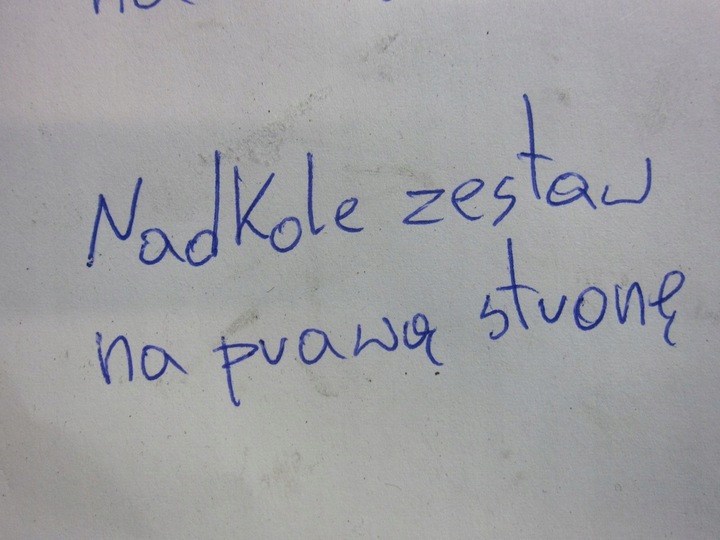 Nadkole zestaw
na prawą stronę